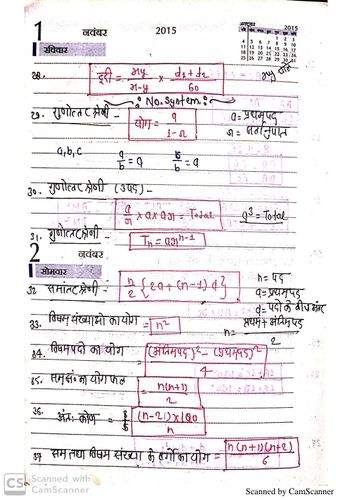 1 नवंबर 2015
रविवार
अक्टूबर 2015
28. दूरी = xy/x-y × d1+d2/60
:No. System:
29. गुणोत्तर श्रेणी - योग = a/1-r a = प्रथमपद
a, b, c
30. गुणोत्तर श्रेणी (3 पद) -
a/r × a × ar = Total a³ = Total
31. गुणोत्तर श्रेणी - Tn = ar^n-1
2 नवंबर
सोमवार
32 समांतर श्रेणी - n/2 {2a + (n-1) d} n = पद
a = प्रथमपद
d = पदो के बीच अंतर
33. विषम संख्याओ का योग = n² n = प्रथम + अंतिम पद / 2
34. विषम पदो का योग = (अंतिमपद)² - (प्रथमपद)² / 4
35. सम सं० का योगफल = n(n+1) / 2
36. अंतः कोण = (n-2) × 180 / n
37 सम तथा विषम संख्या के वर्गो का योग = n(n+1)(n+2) / 6
CS Scanned with CamScanner
Scanned by CamScanner